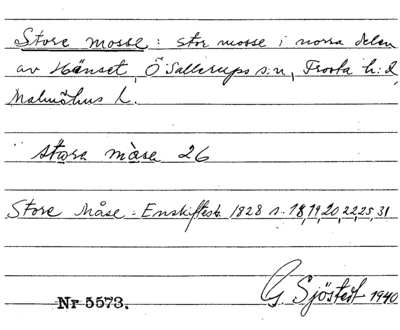 Store mosse: stor mosse i norra delen
av Hänset, Ö Sallerups s:n, Frosta h:d,
Malmöhus l.
stora måse 26
Store Måse = Enskiftesb. 1828 s. 18,19,20,22,25,31
G. Sjöstedt 1940
Nr 5573.